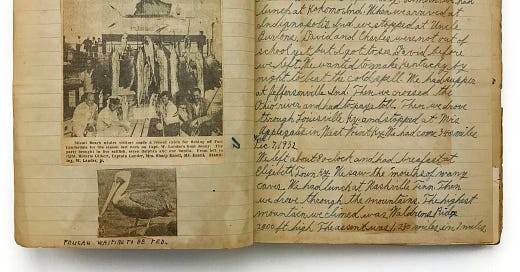 Miami Beach winter visitors made a record catch for fishing off Fort
Lauderdale for the season last week on Capt. W. Lander's boat Betty. The
party brought in five sailfish, seven dolphin and nine bonita. From left to
right, Gilbert, Captain Lander, Mrs. Knoll, Mr. Knoll,
ing, W. Lander, Jr.
PELICAN WAITING TO BE FED.
lunch at Kokomo Ind. When we arrived at
Indianapolis Ind. we stopped at Uncle
Burtons, David and Charles were not out of
school yet but I got to see David before
we left. We wanted to make Kentucky by
night to beat the cold spell. We had supper
at Jeffersonville Ind. Then we crossed the
Ohio river and had to pay toll. Then we drove
through Louisville Ky. and stopped at Mrs
Applegates in West Point Ky. We had come 340 miles.
Dec. 7, 1932
We left about 8 o'clock and had breakfast at
Elizabeth Town Ky. We saw the mouths of many
caves. We had lunch at Nashville Tenn. Then
we drove through the mountains. The highest
mountain we climbed was Waldrons Ridge
2000 ft high. The ascent was 1,230 miles in 7 miles.